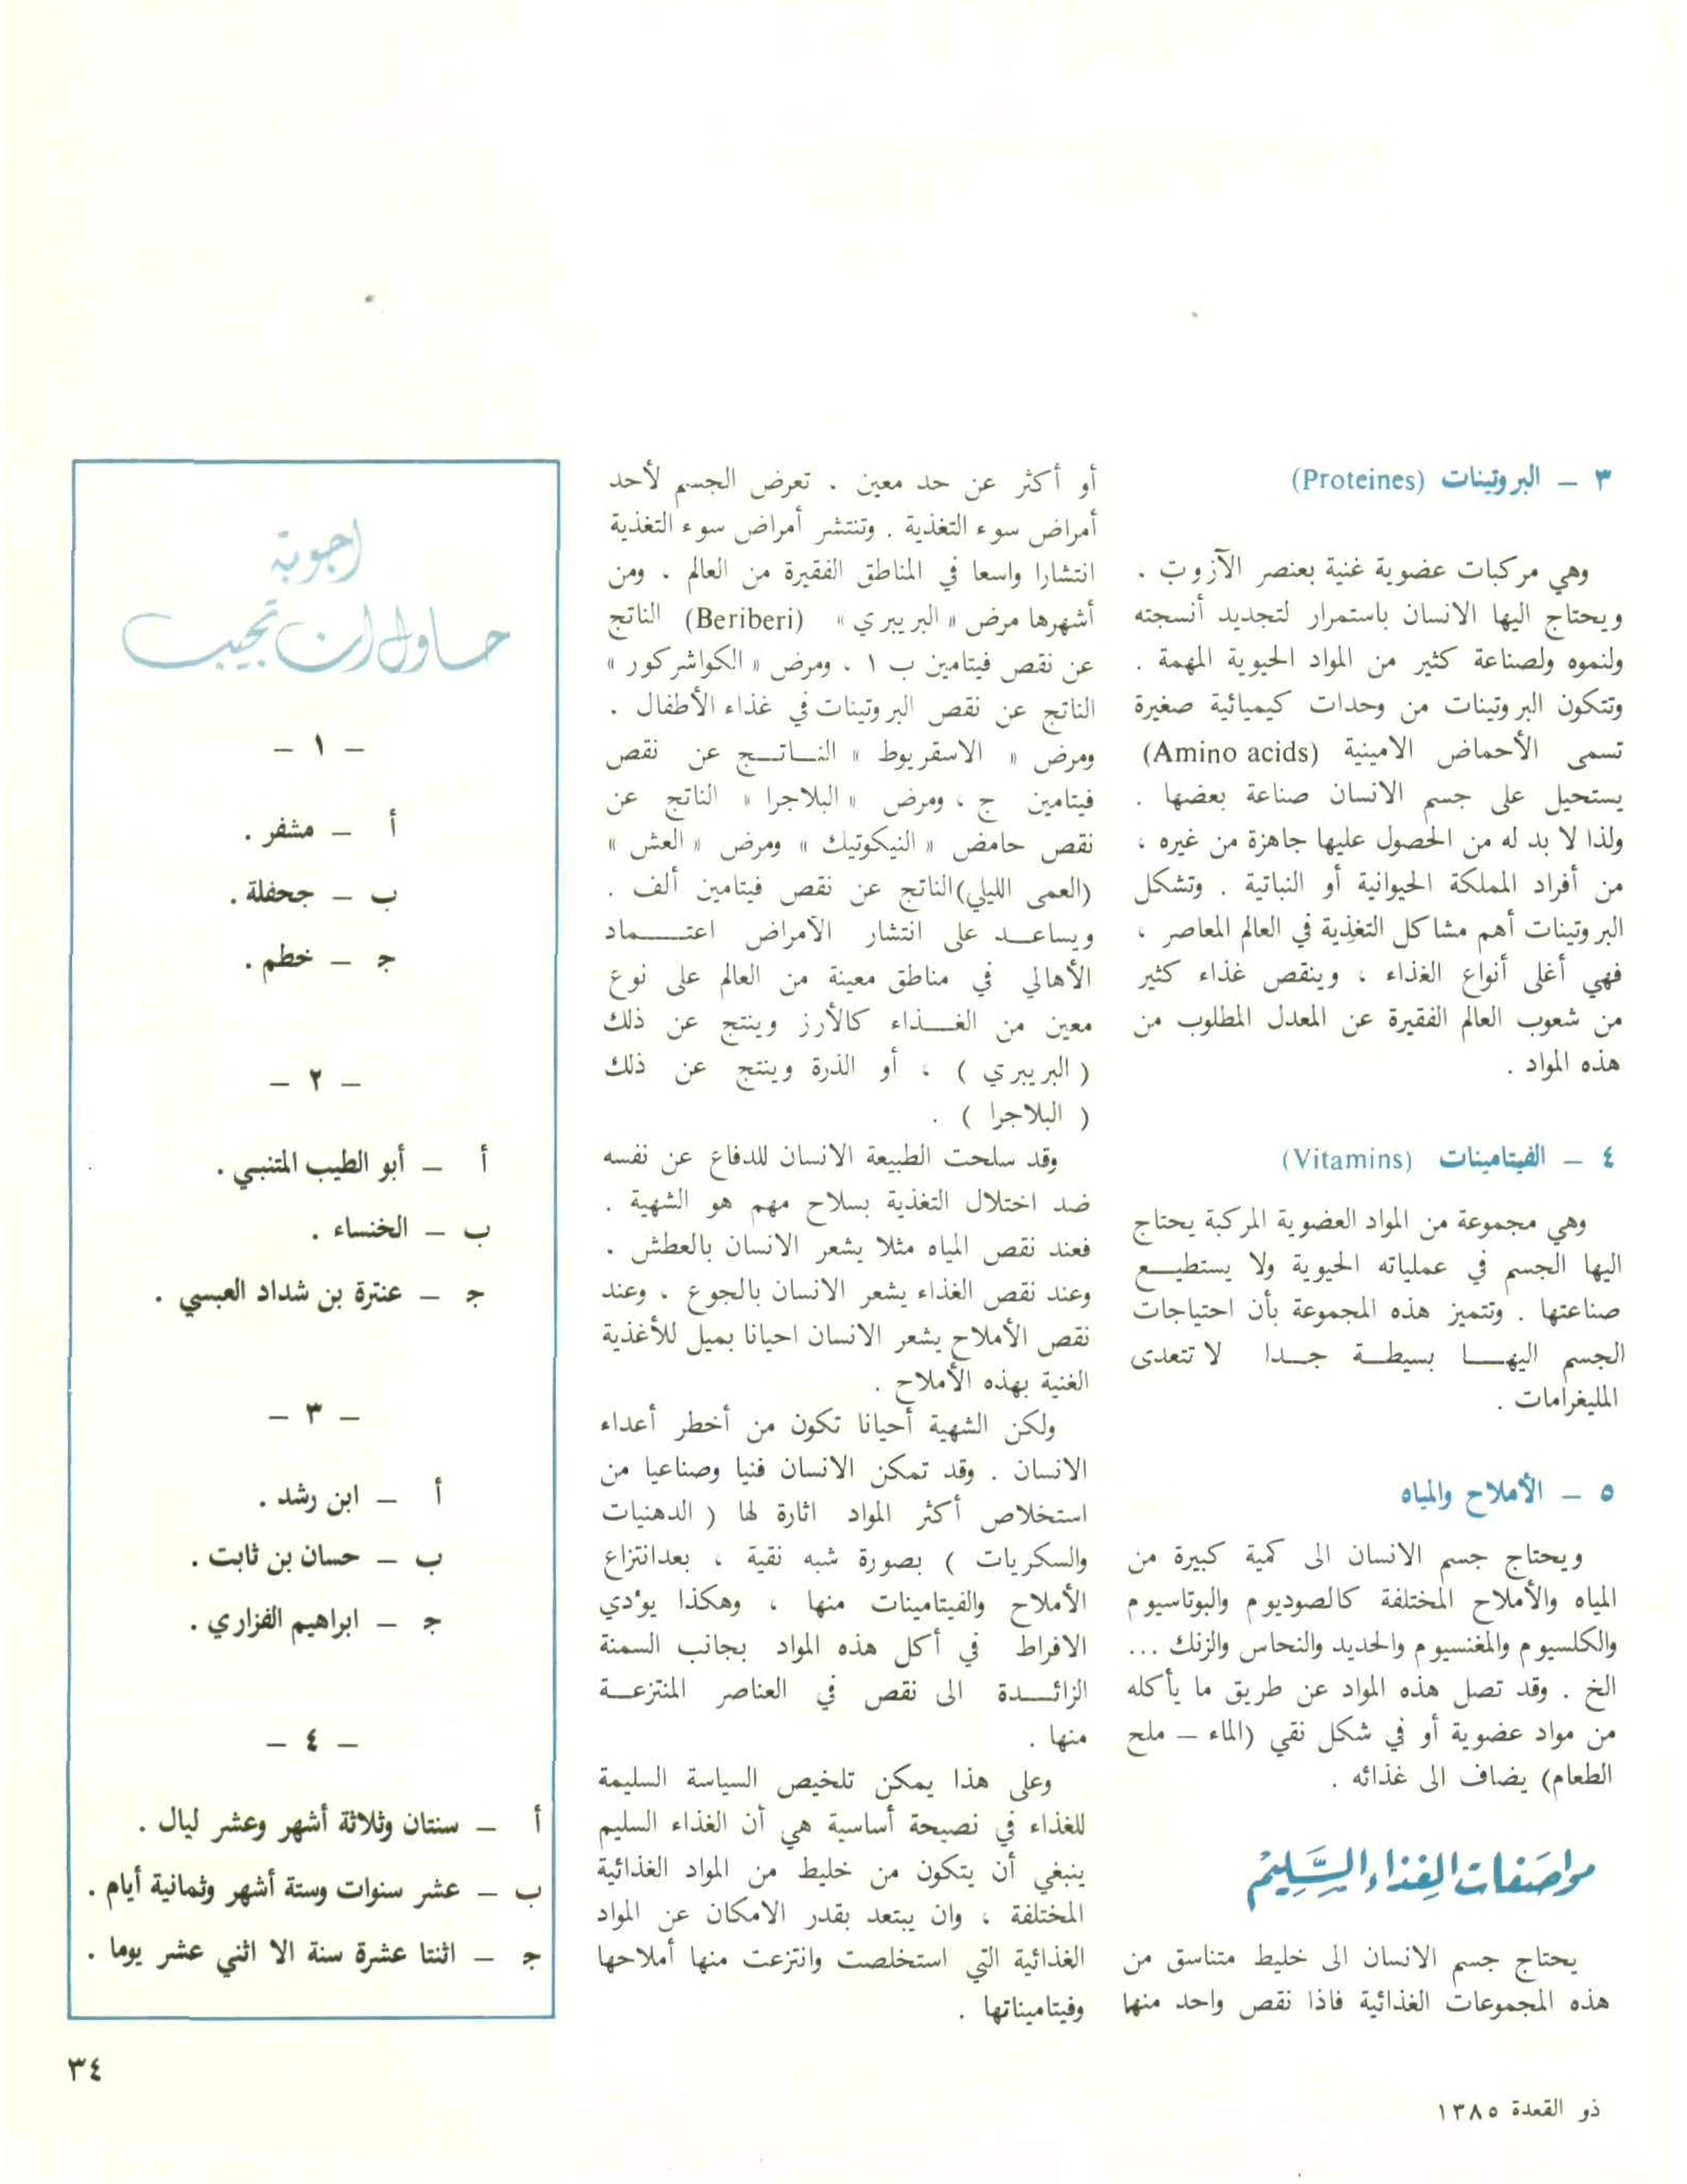 ٣ – البروتينات (Proteines)
وهي مركبات عضوية غنية بعنصر الآزوت .
ويحتاج اليها الانسان باستمرار لتجديد أنسجته
ولنموه ولصناعة كثير من المواد الحيوية المهمة .
وتتكون البروتينات من وحدات كيميائية صغيرة
تسمى الأحماض الامينية (Amino acids)
يستحيل على جسم الانسان صناعة بعضها .
ولذا لا بد له من الحصول عليها جاهزة من غيره ،
من أفراد المملكة الحيوانية أو النباتية . وتشكل
البروتينات أهم مشاكل التغذية في العالم المعاصر ،
فهي أغلى أنواع الغذاء ، وينقص غذاء كثير
من شعوب العالم الفقيرة عن المعدل المطلوب من
هذه المواد .
٤ – الفيتامينات (Vitamins)
وهي مجموعة من المواد العضوية المركبة يحتاج
اليها الجسم في عملياته الحيوية ولا يستطيـع
صناعتها . وتتميز هذه المجموعة بأن احتياجات
الجسم اليهـا بسيطـة جـدا لا تتعدى
المليغرامات .
٥ – الأملاح والمياه
ويحتاج جسم الانسان الى كمية كبيرة من
المياه والأملاح المختلفة كالصوديوم والبوتاسيوم
والكلسيوم والمغنسيوم والحديد والنحاس والزنك ...
الخ . وقد تصل هذه المواد عن طريق ما يأكله
من مواد عضوية أو في شكل نقي (الماء – ملح
الطعام) يضاف الى غذائه .
مواصفات الغذاء السليم
يحتاج جسم الانسان الى خليط متناسق من
هذه المجموعات الغذائية فاذا نقص واحد منها
أو أكثر عن حد معين . تعرض الجسم لأحد
أمراض سوء التغذية . وتنتشر أمراض سوء التغذية
انتشارا واسعا في المناطق الفقيرة من العالم . ومن
أشهرها مرض « البريبري » (Beriberi) الناتج
عن نقص فيتامين ب ١ . ومرض « الكواشركور »
الناتج عن نقص البروتينات في غذاء الأطفال .
ومرض « الاسقربوط » النـاتـج عن نقص
فيتامين ج ، ومرض « البلاجرا » الناتج عن
نقص حامض « النيكوتيك » ومرض « العش »
(العمى الليلي) الناتج عن نقص فيتامين ألف .
ويساعـد على انتشار الأمراض اعتـماد
الأهالي في مناطق معينة من العالم على نوع
معين من الغـذاء كالأرز وينتج عن ذلك
( البريبري ) ، أو الذرة وينتج عن ذلك
( البلاجرا ) .
وقد سلحت الطبيعة الانسان للدفاع عن نفسه
ضد اختلال التغذية بسلاح مهم هو الشهية .
فعند نقص المياه مثلا يشعر الانسان بالعطش .
وعند نقص الغذاء يشعر الانسان بالجوع ، وعند
نقص الأملاح يشعر الانسان احيانا بميل للأغذية
الغنية بهذه الأملاح .
ولكن الشهية أحيانا تكون من أخطر أعداء
الانسان . وقد تمكن الانسان فنيا وصناعيا من
استخلاص أكثر المواد اثارة لها ( الدهنيات
والسكريات ) بصورة شبه نقية ، بعدانتزاع
الأملاح والفيتامينات منها ، وهكذا يؤدي
الافراط في أكل هذه المواد بجانب السمنة
الزائـدة الى نقص في العناصر المنتزعـة
منها .
وعلى هذا يمكن تلخيص السياسة السليمة
للغذاء في نصيحة أساسية هي أن الغذاء السليم
ينبغي أن يتكون من خليط من المواد الغذائية
المختلفة ، وان يبتعد بقدر الامكان عن المواد
الغذائية التي استخلصت وانتزعت منها أملاحها
وفيتاميناتها .
اجوبة
حاول ان تجيب
– ١ –
أ – مشفر .
ب – جحفلة .
ج – خطم .
– ٢ –
أ – أبو الطيب المتنبي .
ب – الخنساء .
ج – عنترة بن شداد العبسي .
– ٣ –
أ – ابن رشد .
ب – حسان بن ثابت .
ج – ابراهيم الفزاري .
– ٤ –
أ – سنتان وثلاثة أشهر وعشر ليال .
ب – عشر سنوات وستة أشهر وثمانية أيام .
ج – اثنتا عشرة سنة الا اثني عشر يوما .
٣٤
ذو القعدة ١٣٨٥